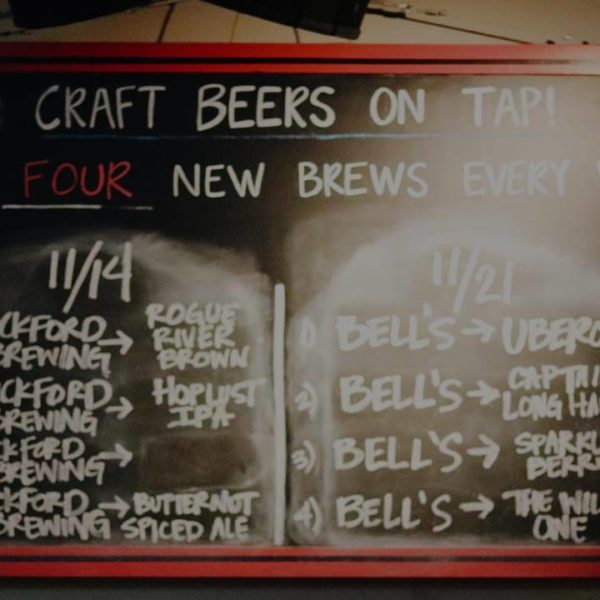 CRAFT BEERS ON TAP!
FOUR NEW BREWS EVERY
11/14
CKFORD BREWING → ROGUE RIVER BROWN
CKFORD BREWING → HOPLUST IPA
CKFORD BREWING →
CKFORD BREWING → BUTTERNUT SPICED ALE
11/21
1) BELL'S → UBERO
2) BELL'S → CAPTAI LONG HA
3) BELL'S → SPARKL BERR
4) BELL'S → THE WIL ONE